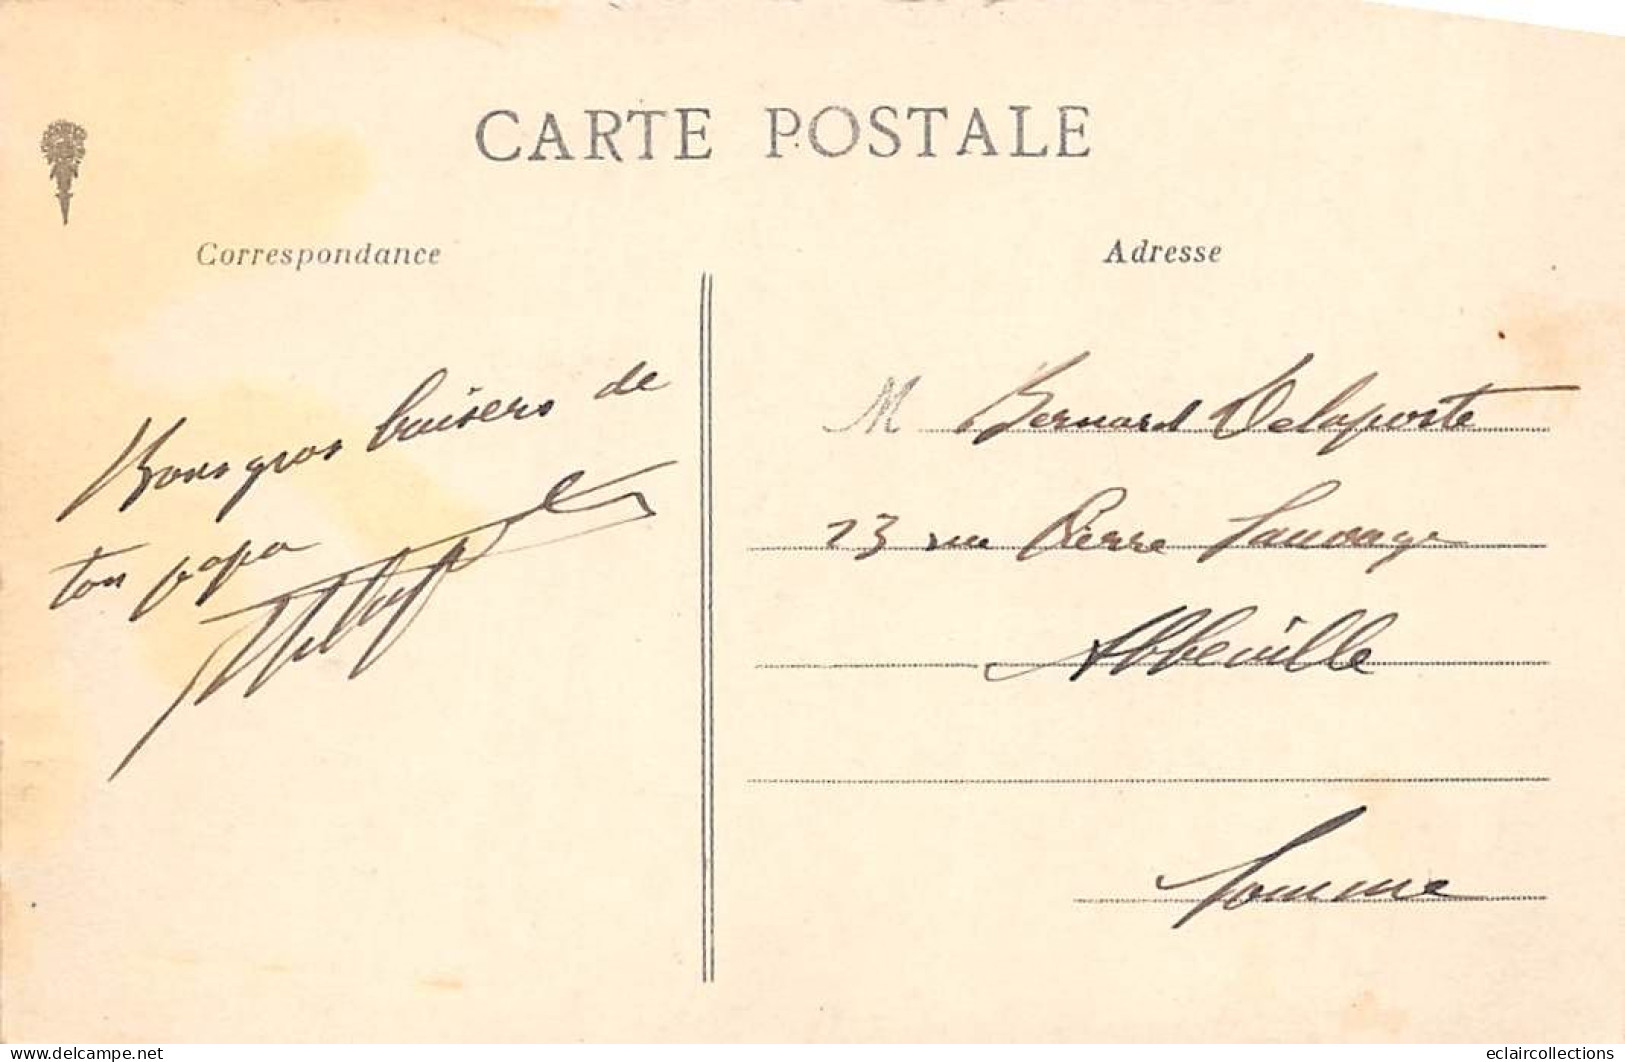 CARTE POSTALE
Correspondance
Adresse
Bons gros baisers de
ton papa
M Bernard Delaporte
23 rue Pierre Sauvage
Abbeville
Somme
delcampe.net
eclaircollections